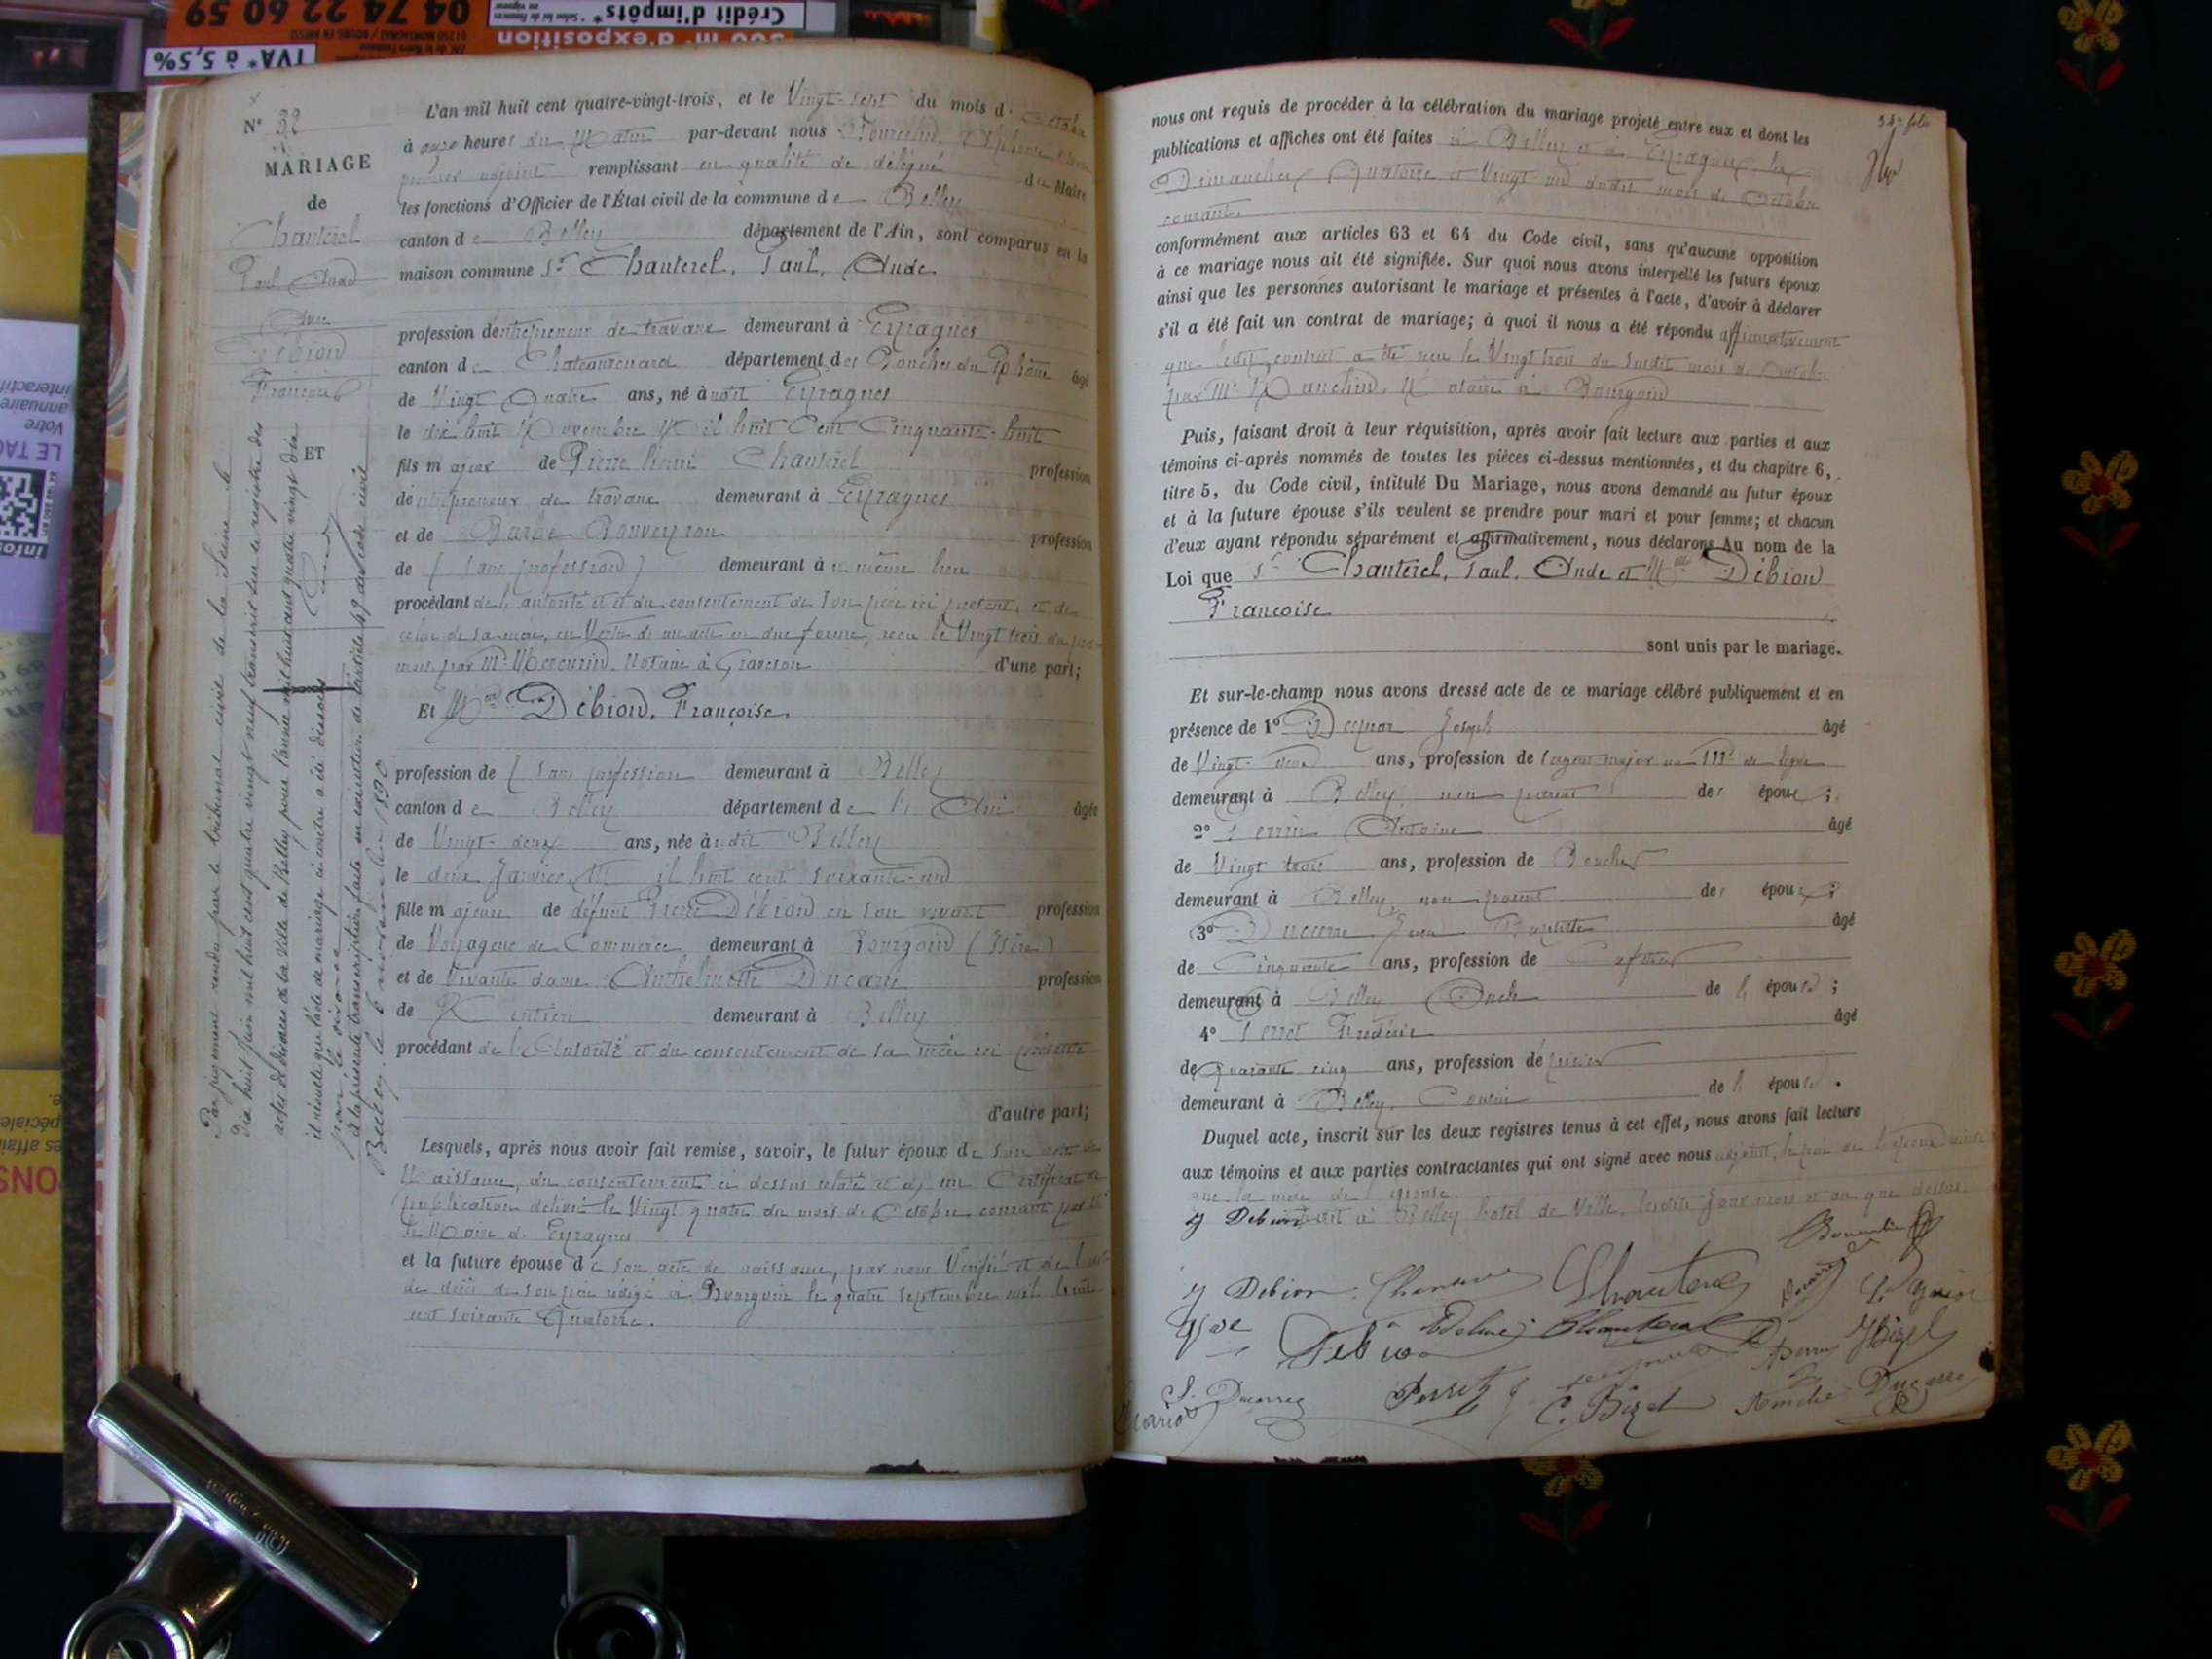 04 74 22 60 59
Crédit d'impôts*
300 m² d'exposition
TVA* à 5,5%
N° 
MARIAGE
de
Chanterel
Paul Aude
Avec
Débion
Françoise
ET
L'an mil huit cent quatre-vingt-trois, et le Vingt-sept du mois d' Octobre
à onze heures du Matin par-devant nous
premier adjoint remplissant en qualité de délégué du Maire
les fonctions d'Officier de l'État civil de la commune de Belley
canton de Belley département de l'Ain, sont comparus en la
maison commune Sr Chanterel, Paul, Aude
profession d'entrepreneur de travaux demeurant à Eyragues
canton de Chateaurenard département des Bouches du Rhône âgé
de Vingt Quatre ans, né audit Eyragues
le dix huit Novembre Mil huit Cent Cinquante-huit
fils majeur de Pierre henri Chanterel profession
d'entrepreneur de travaux demeurant à Eyragues
et de Barbe Bouveyron profession
de (sans profession) demeurant au même lieu
procédant de l'autorité et du consentement de son père ici présent, et de
celui de sa mère, en Vertu de un acte en due forme, reçu le Vingt trois du
mois par Me Mercurin, Notaire à Graveson d'une part;
Et Mlle Débion, Françoise,
profession de (sans profession demeurant à Belley
canton de Belley département de l'Ain âgée
de Vingt-deux ans, née audit Belley
le deux Janvier Mil huit cent soixante-un
fille majeure de défunt Pierre Débion en son vivant profession
de Voyageur de Commerce demeurant à Bourgoin (Isère)
et de Vivante dame Anthelmette Ducarre profession
de Rentière demeurant à Belley
procédant de l'Autorité et du consentement de sa mère ici présente
d'autre part;
Lesquels, après nous avoir fait remise, savoir, le futur époux de son acte de
Naissance, du consentement ci dessus relaté et d'un Certificat de
publication délivré le Vingt quatre du mois de Octobre courant par Mr
le Maire d'Eyragues
et la future épouse de son acte de naissance, par nous Vérifié et de l'acte
de décès de son père rédigé à Bourgoin le quatre septembre mil huit
cent soixante Quatorze.
Par jugement rendu par le tribunal civil de la Seine le
dix huit juin mil huit cent quatre vingt neuf transcrit sur le registre des
actes de divorces de la Ville de Belley pour l'année mil huit cent quatre vingt dix
il résulte que l'acte de mariage ci contre a été dissous
par le divorce
à la présente transcription faite en exécution de l'article 49 du Code civil
Belley, le 6 novembre 1890
nous ont requis de procéder à la célébration du mariage projeté entre eux et dont les
publications et affiches ont été faites à Belley et à Eyragues, les
Dimanches Quatorze et Vingt-un dudit mois de Octobre
courant.
conformément aux articles 63 et 64 du Code civil, sans qu'aucune opposition
à ce mariage nous ait été signifiée. Sur quoi nous avons interpellé les futurs époux
ainsi que les personnes autorisant le mariage et présentes à l'acte, d'avoir à déclarer
s'il a été fait un contrat de mariage; à quoi il nous a été répondu affirmativement
que ledit contrat a été reçu le Vingt trois du susdit mois de Octobre
par Me Notaire à Bourgoin
Puis, faisant droit à leur réquisition, après avoir fait lecture aux parties et aux
témoins ci-après nommés de toutes les pièces ci-dessus mentionnées, et du chapitre 6,
titre 5, du Code civil, intitulé Du Mariage, nous avons demandé au futur époux
et à la future épouse s'ils veulent se prendre pour mari et pour femme; et chacun
d'eux ayant répondu séparément et affirmativement, nous déclarons Au nom de la
Loi que Sr Chanterel, Paul, Aude et Mlle Débion
Françoise
sont unis par le mariage.
Et sur-le-champ nous avons dressé acte de ce mariage célébré publiquement et en
présence de 1° Joseph âgé
de Vingt- ans, profession de sergent major au 111e de ligne
demeurant à Belley, non parent des époux;
2° Perrin Antoine âgé
de Vingt trois ans, profession de Boucher
demeurant à Belley, non parent des époux;
3° Ducarre Jean Baptiste âgé
de Cinquante ans, profession de Cafetier
demeurant à Belley Oncle de l'épouse;
4° Perret Frédéric âgé
de quarante cinq ans, profession d'épicier
demeurant à Belley, Cousin de l'épouse.
Duquel acte, inscrit sur les deux registres tenus à cet effet, nous avons fait lecture
aux témoins et aux parties contractantes qui ont signé avec nous adjoint, le père de l'époux ainsi
que la mère de l'épouse.
Débion fait à Belley hotel de Ville, lesdits Jour mois et an que dessus.
Debion Chanterel
Débion
Chanterel
Perret
C. Bizel
J Bizel
Perrin
Amélie Ducarre
J. Ducarre